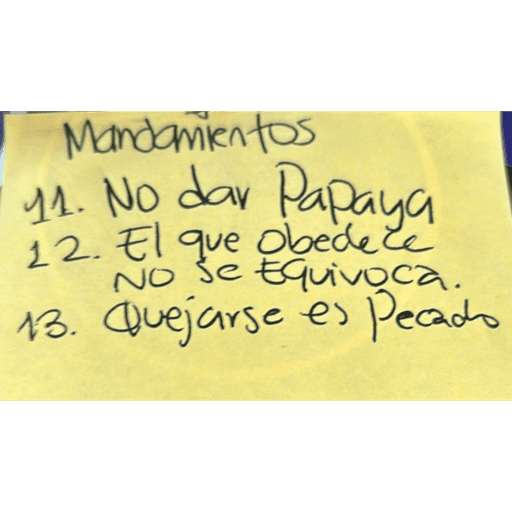 Mandamientos
11. No dar Papaya
12. El que obedece
No se Equivoca.
13. Quejarse es Pecado